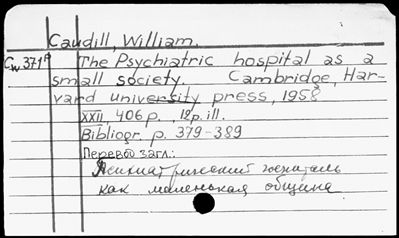 Caudill, William.
Cw371A The Psychiatric hospital as a
small society. Cambridge, Har-
vard university press, 1958
XXII, 406 p. 12p. ill.
Bibliogr. p. 379-389
Перевод загл.:
Психиатрический госпиталь
как маленькая община